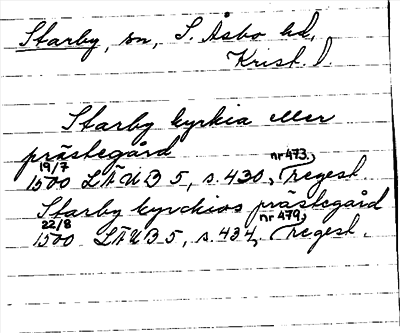 Starby, sn, S. Åsbo hd,
Krist. l.
Starby kyrkia eller
prästegård
19/7 nr 473,
1500 LÄUB 5, s. 430, Regest.
Starby kyrckios prästegård
22/8 nr 479,
1500 LÄUB 5, s. 434, Regest.